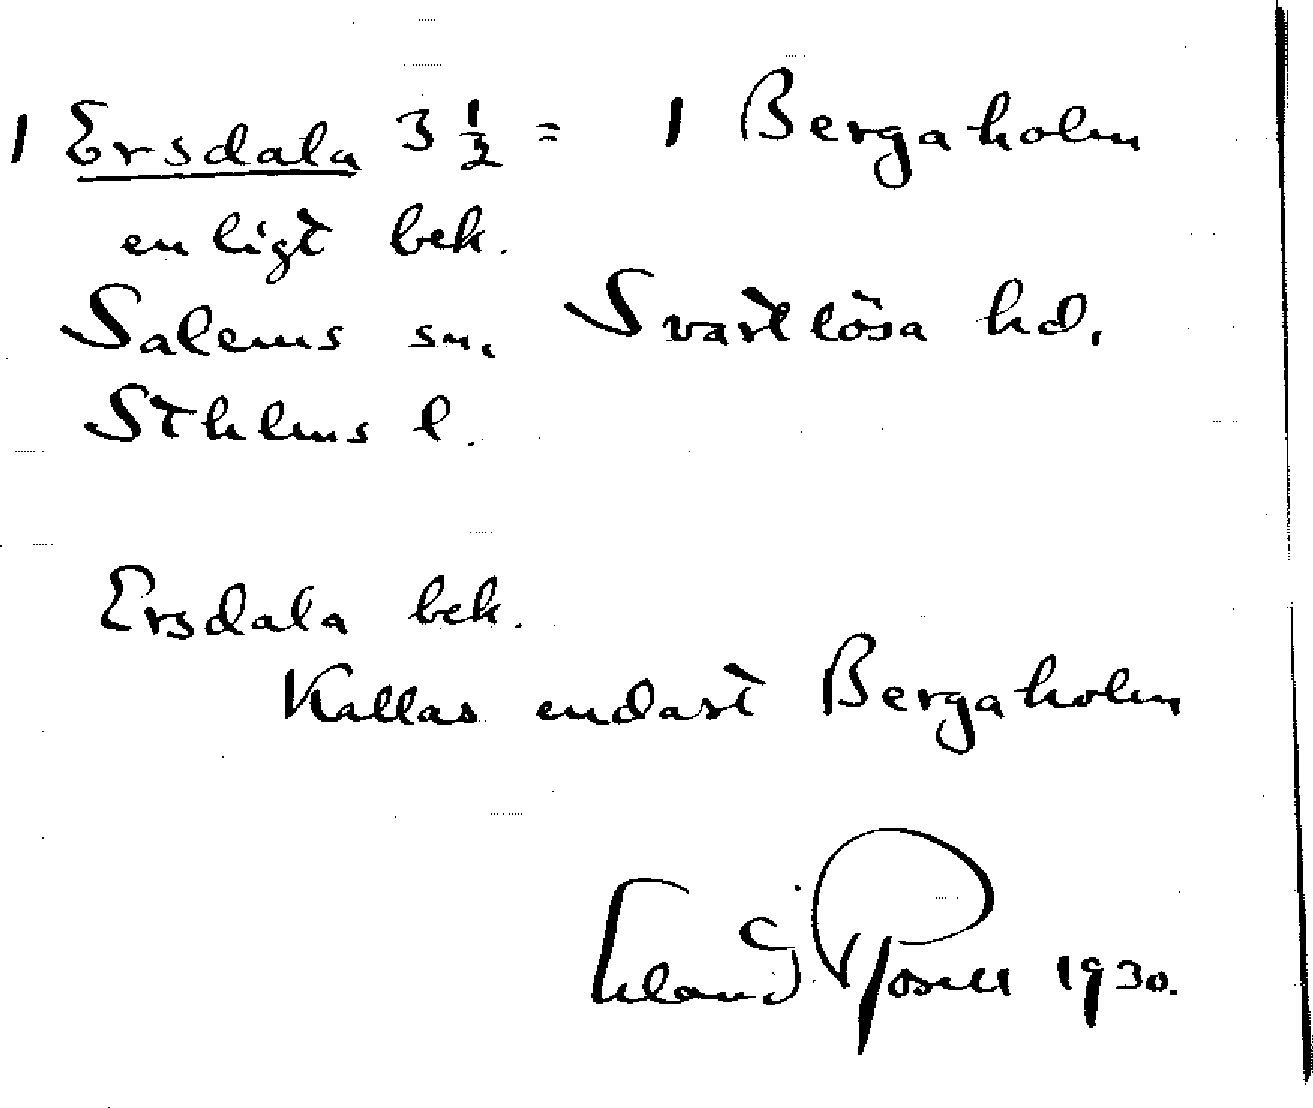 1 Ersdala 3 1/2 = 1 Bergaholm
enligt bek.
Salems sn. Svartlösa hd.
Sthlms l.
Ersdala bek.
Kallas endast Bergaholm
Erland Rosell 1930.